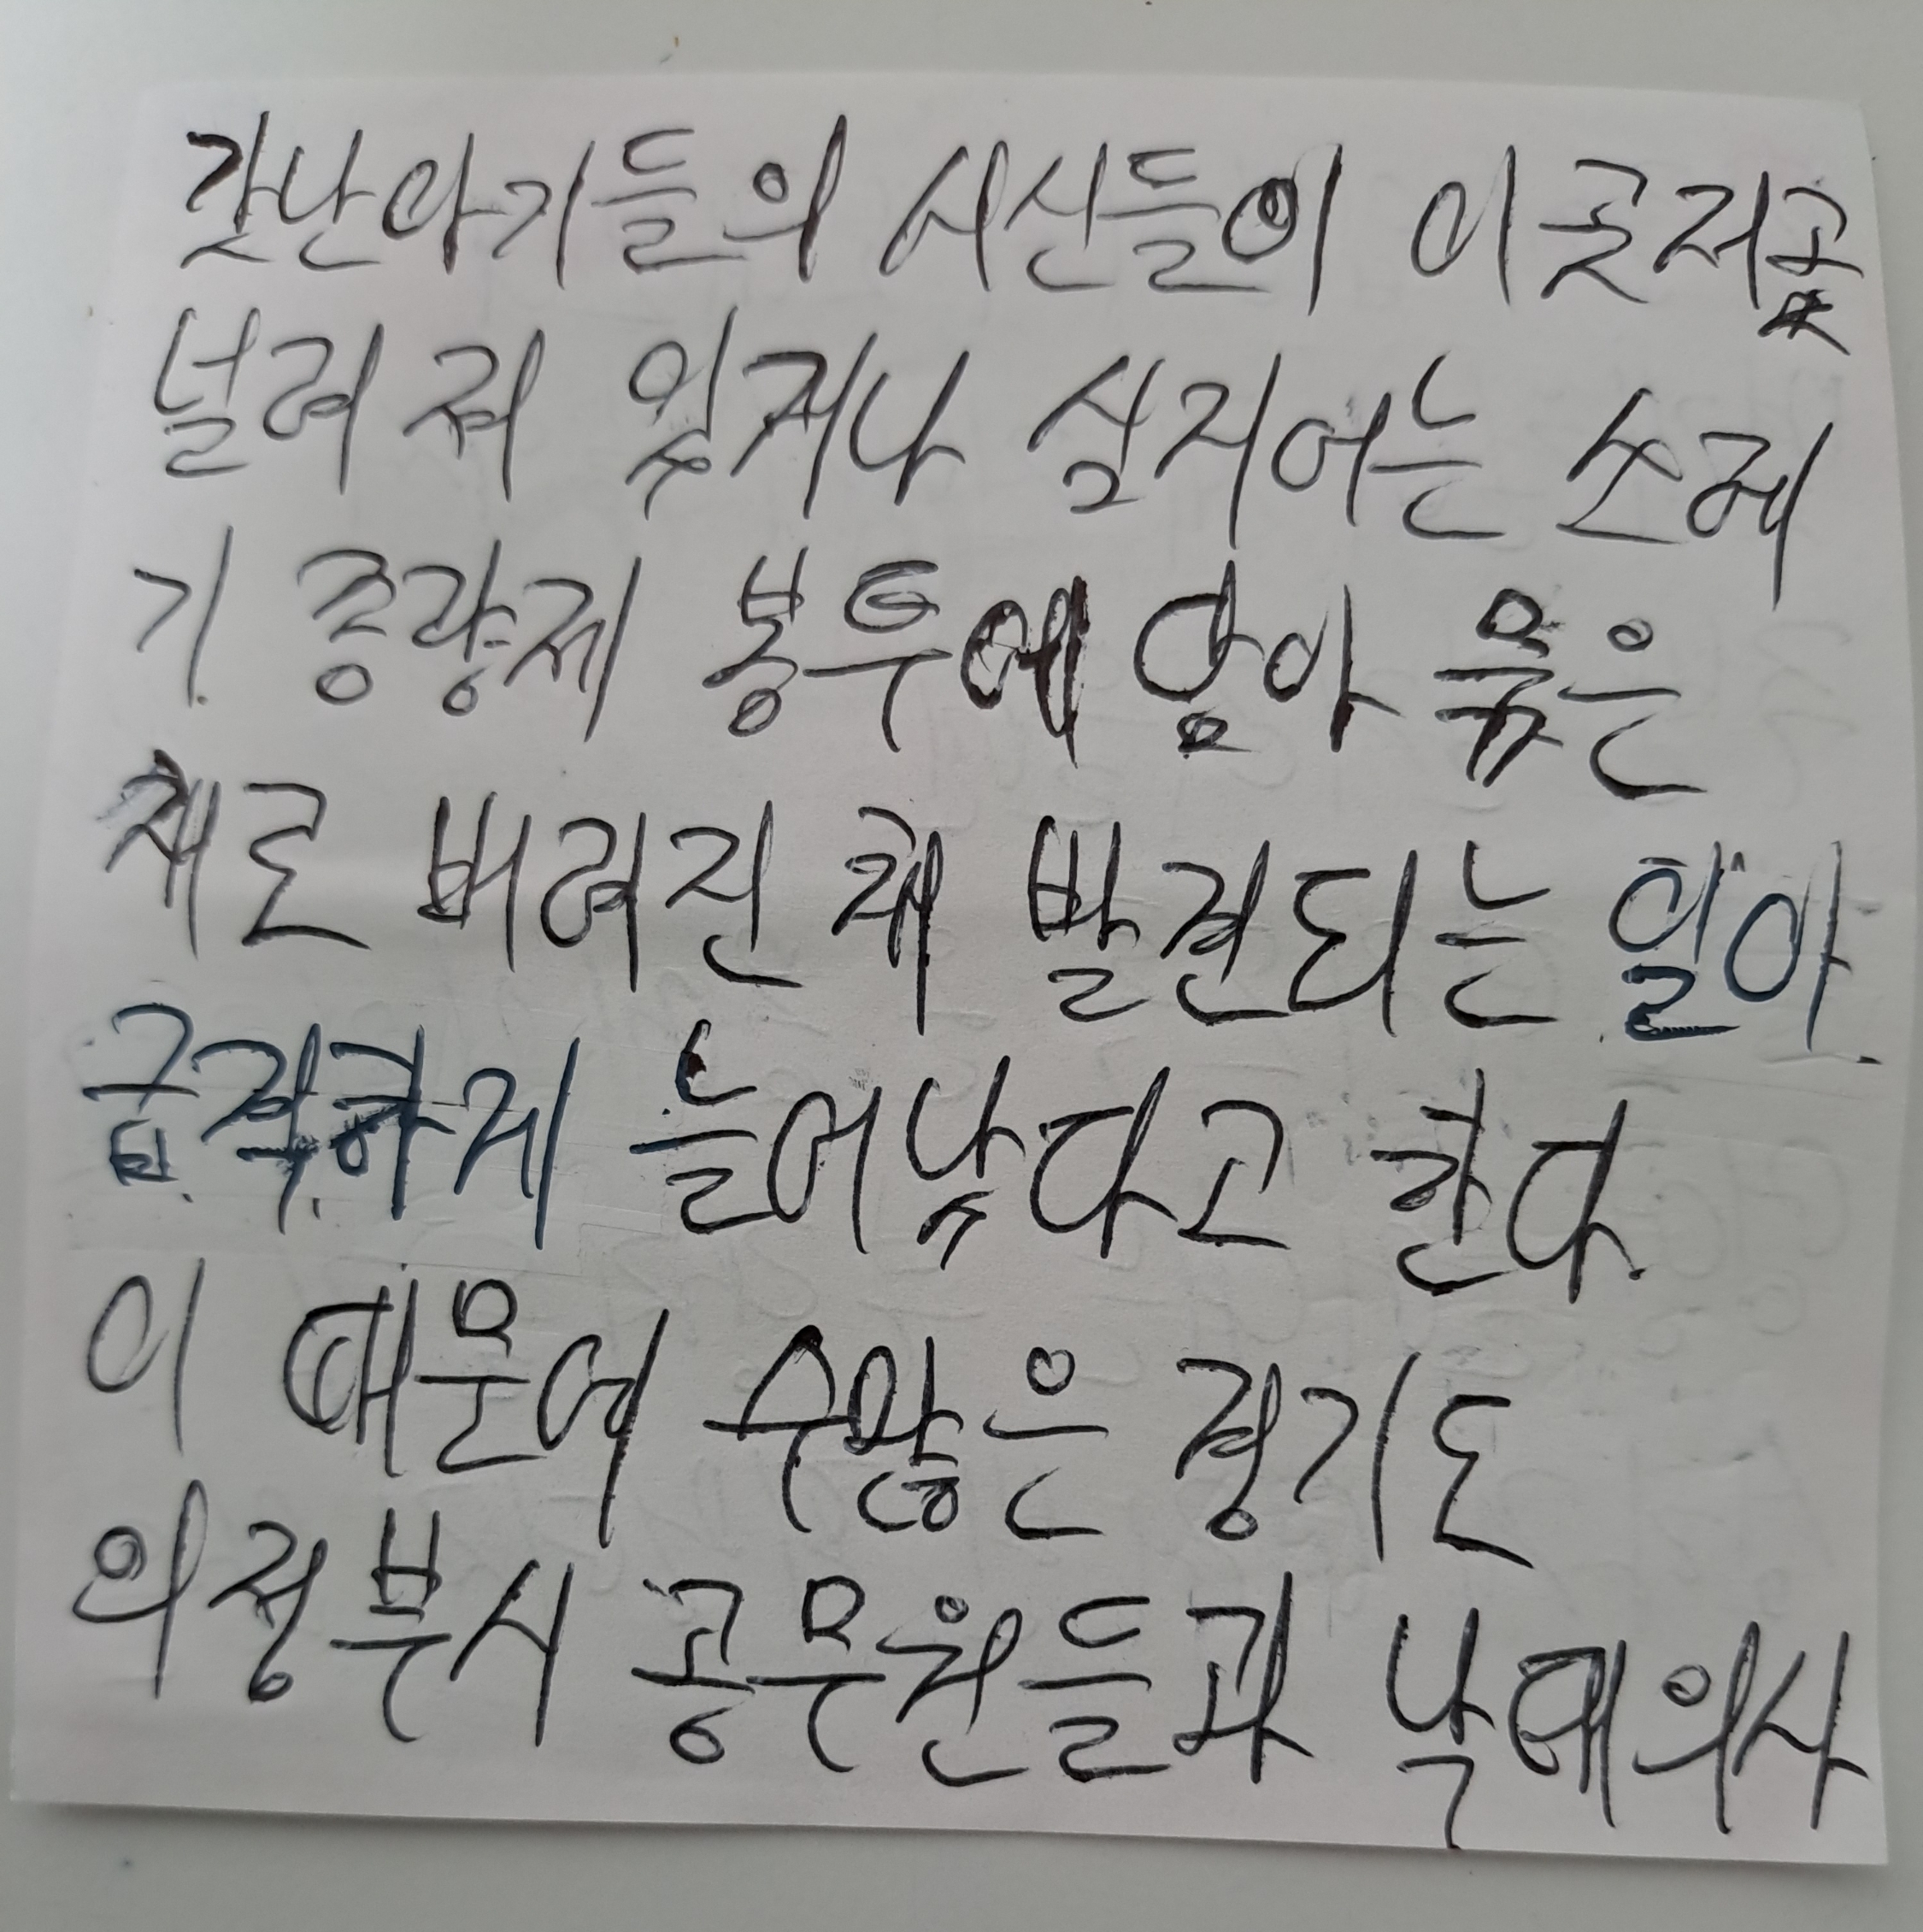 갓난아기들의 시신들이 이곳저곳
널려 져 있거나 심지어는 쓰레
기 종량제 봉투에 담아 묶은
채로 버려진 채 발견되는 일아
급격하게 늘어났다고 한다.
이 때문에 수많은 경기도
의정부시 공무원들과 낙태의사